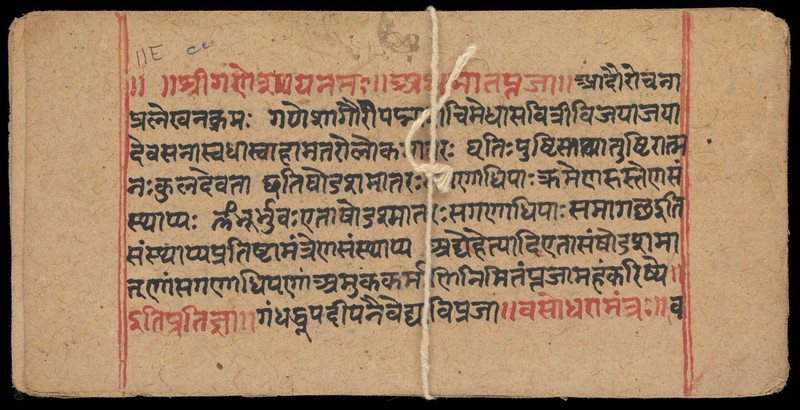 ११E
॥ ॥ श्रीगणेशायनमः॥ अथ मातपूजा॥ आदौरोचना
प्रलेखनक्रमः गणेशागौरीपद्मा चिमेधासवित्रीविजयाजया
देवसनास्वधास्वाहामतरोलोक तरः घृतिःपुष्टिस्तथातुष्टिरात्म
नःकुलदेवता घतिषोडशमातरः गणाधिपाः क्रमेणसस्तेणसं
स्थाप्यः भूर्भुवःएताषोडशमातरःसगणाधिपाःसमागछइति
संस्थाप्यप्रतिष्टामंत्रेणसंस्थाप्य अद्येहेत्यादिएतासंषोडशमा
तृणांसगणाधिपणां अमुककर्माणिनिमितंपूजामहंकरिष्ये॥
इतिप्रतिज्ञा॥ गंधधूपदीपनैवेद्य विपूजा॥ वसोधरामंत्रः॥ व